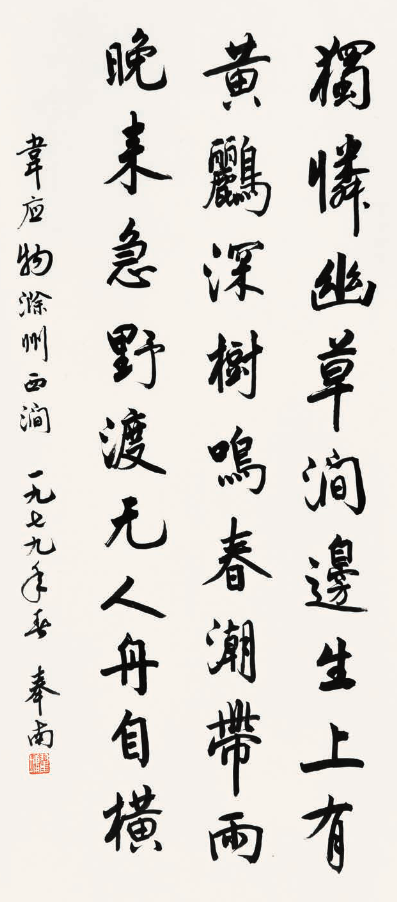 獨憐幽草澗邊生上有
黃鸝深樹鳴春潮帶雨
晚来急野渡无人舟自橫
韋应物滁州西澗 一九七九年春 奉南